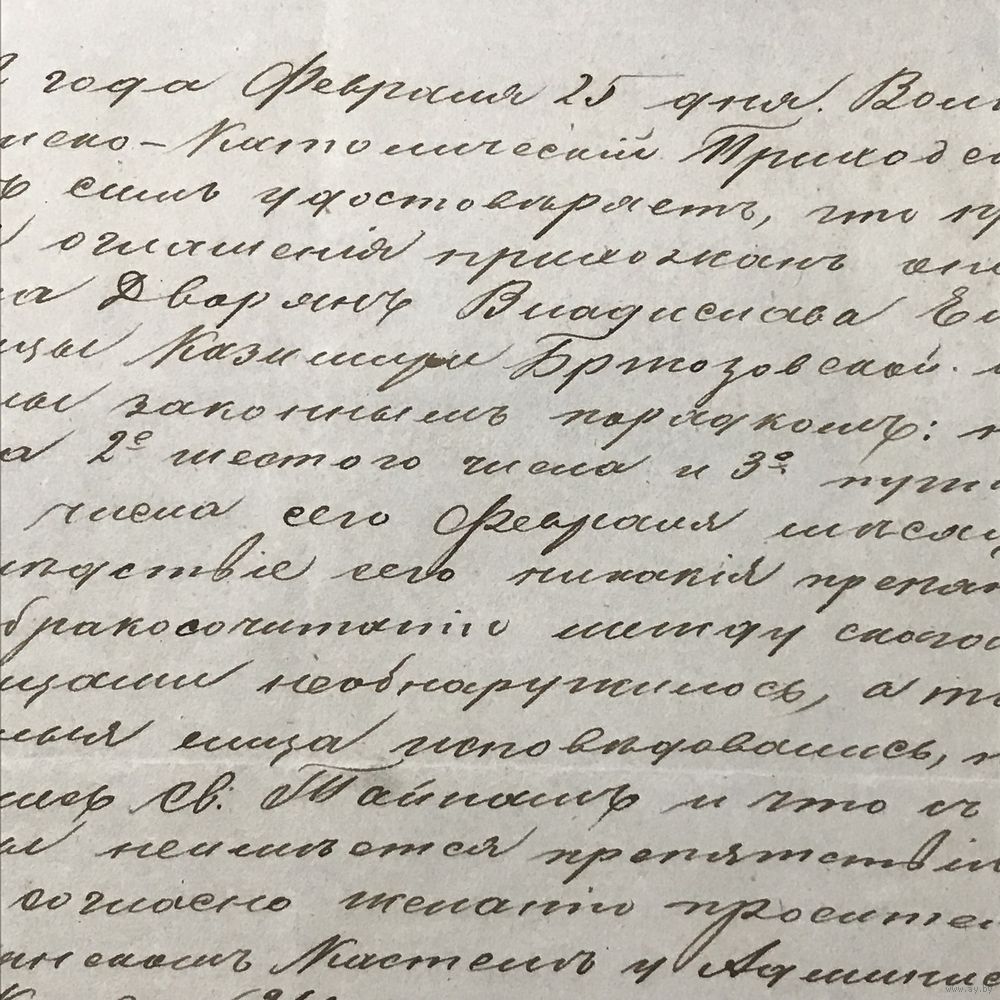 года Февраля 25 дня. Вол
имско-Католическій Приходск
ъ симъ удостовѣряетъ, что пр
оглашенія прихожанъ оно
на Дворянъ Владислава
ицы Казимиры Бржозовской.
ны законнымъ порядкомъ:
а 2е шестого числа и 3е
числа сего Февраля мѣсяц
лѣдствіе сего никакія препят
бракосочитанію между сказа
ицами необнаружилось, а
ныя лица исповѣдовались,
лись Св: Тайнамъ и что
ы неимѣется препятствія
согласно желанію просите
инскомъ Костелѣ у Админис
www.ay.by